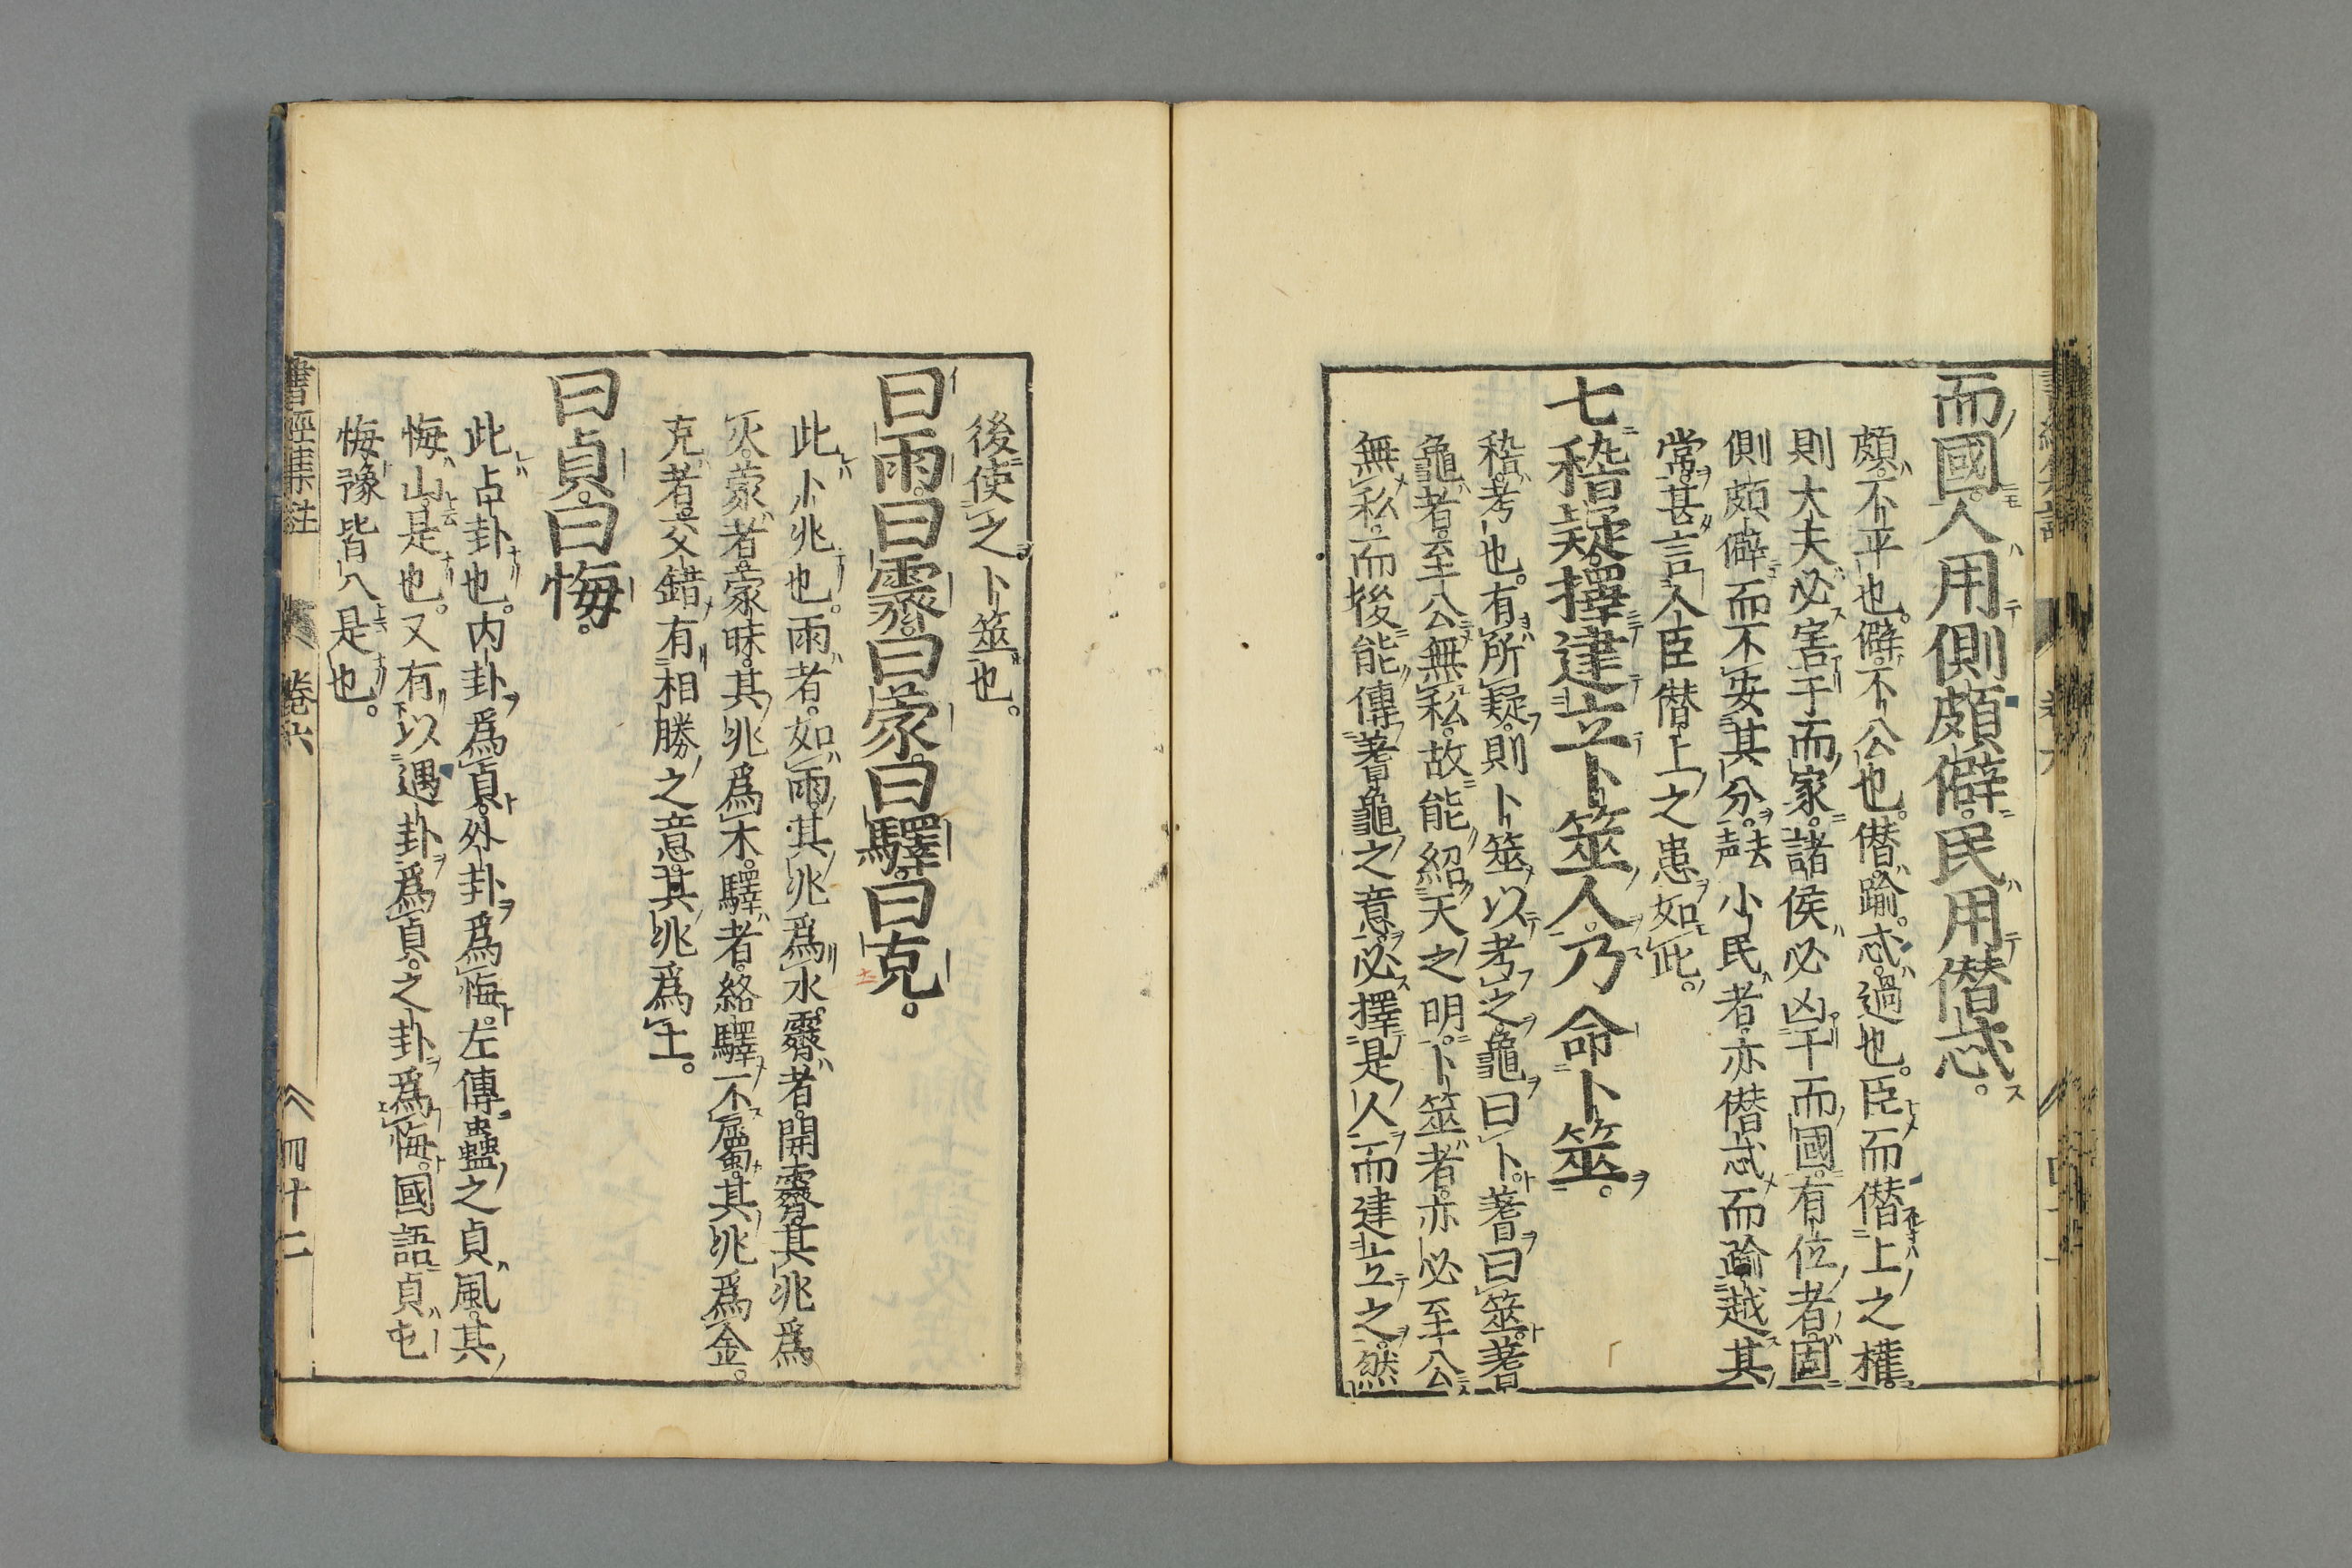 而國人用側頗僻民用僭忒
頗不平也僻不公也僭踰忒過也臣而僭上之權
則大夫必害于而家諸侯必凶于而國有位者固
側頗僻而不安其分小民者亦僭忒而踰越其
常甚言人臣僭上之患如此
七稽疑擇建立卜筮人乃命卜筮
稽考也有所疑則卜筮以考之龜曰卜蓍曰筮蓍
龜者至公無私故能紹天之明卜筮者亦必至公
無私而後能傳蓍龜之意必擇是人而建立之然
後使之卜筮也
曰雨曰霽曰蒙曰驛曰克
此卜兆也雨者如雨其兆爲水霽者開霽其兆爲
火蒙者蒙昧其兆爲木驛者絡驛不屬其兆爲金
克者交錯有相勝之意其兆爲土
曰貞曰悔
此占卦也内卦爲貞外卦爲悔左傳蠱之貞風其
悔山是也又有以遇卦爲貞之卦爲悔國語貞屯
悔豫皆八是也
書經集註 卷六 四十二